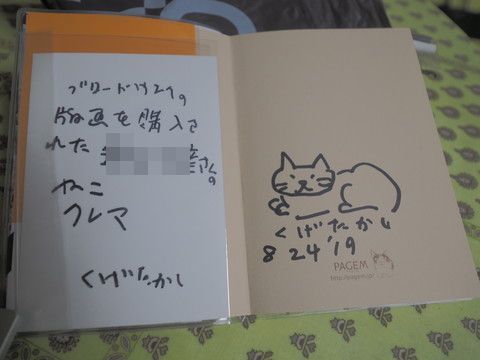 ブロードサイクの
版画を購入さ
れた
さんの
ねこ
クレマ
くげたかし
くげたかし
8 24 '19
PAGEM